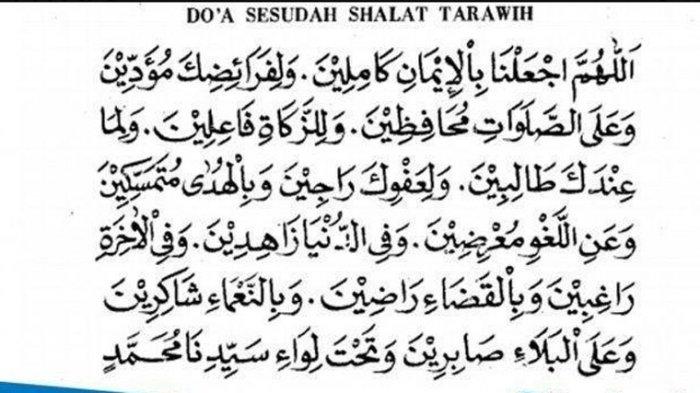 DO'A SESUDAH SHALAT TARAWIH
اَللّٰهُمَّ اجْعَلْنَا بِاْلإِيْمَانِ كَامِلِيْنَ. وَلِفَرَائِضِكَ مُؤَدِّيْنَ
وَعَلَى الصَّلَوَاتِ مُحَافِظِيْنَ. وَلِلزَّكَاةِ فَاعِلِيْنَ. وَلِمَا
عِنْدَكَ طَالِبِيْنَ. وَلِعَفْوِكَ رَاجِيْنَ وَبِالْهُدٰى مُتَمَسِّكِيْنَ
وَعَنِ اللَّغْوِ مُعْرِضِيْنَ. وَفِى الدُّنْيَا زَاهِدِيْنَ. وَفِى اْلاٰخِرَةِ
رَاغِبِيْنَ وَبِاْلقَضَاءِ رَاضِيْنَ. وَبِالنَّعْمَاءِ شَاكِرِيْنَ
وَعَلَى الْبَلَاءِ صَابِرِيْنَ وَتَحْتَ لِوَاءِ سَيِّدِنَا مُحَمَّدٍ